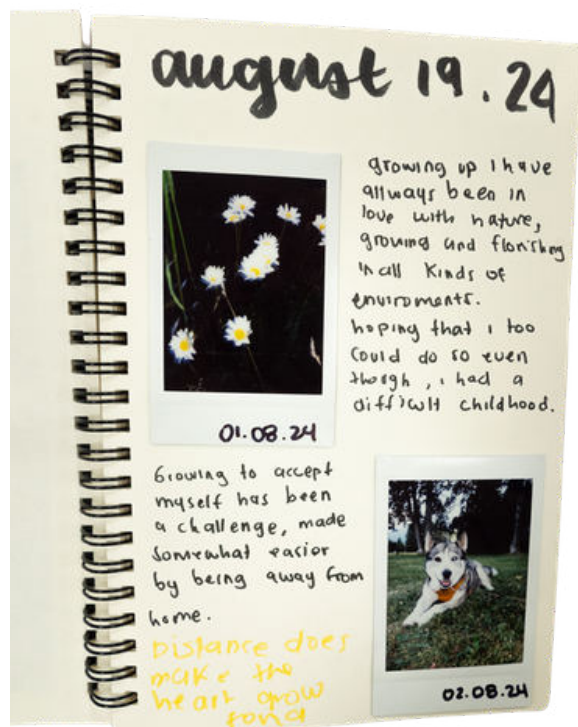 august 19.24
growing up I have
allways been in
love with nature,
growing and florishing
in all kinds of
enviroments.
hoping that i too
could do so even
though, i had a
difficult childhood.
01.08.24
Growing to accept
myself has been
a challenge, made
somewhat easier
by being away from
home.
Distance does
make the
heart grow
fond
02.08.24